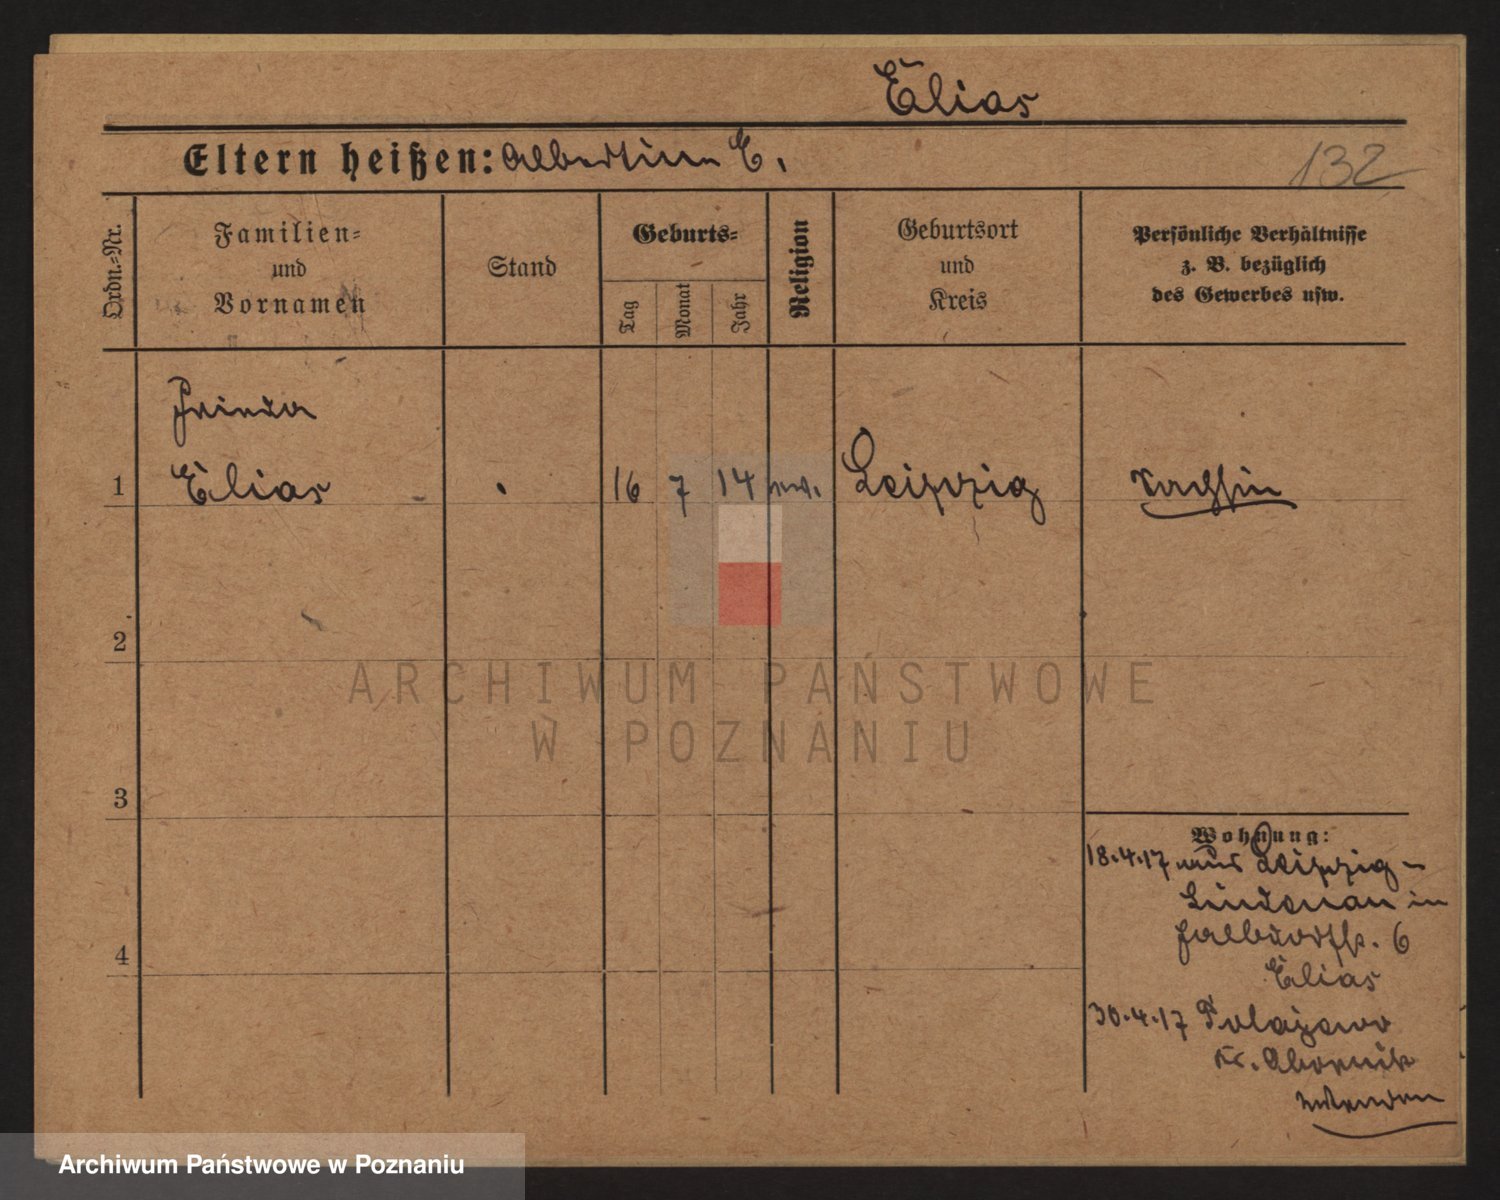 Elias
Eltern heißen: Albertine E.
132
Ordn.-Nr.
Familien-
und
Vornamen
Stand
Geburts-
Tag
Monat
Jahr
Religion
Geburtsort
und
Kreis
Persönliche Verhältnisse
z. B. bezüglich
des Gewerbes usw.
Frieda
1 Elias 16 7 14 Leipzig
2
3
4
Wohnung:
18.4.17 aus Leipzig-
Lindenau in
6
Elias
30.4.17
Kr. Obornik
ARCHIWUM PAŃSTWOWE
W POZNANIU
Archiwum Państwowe w Poznaniu